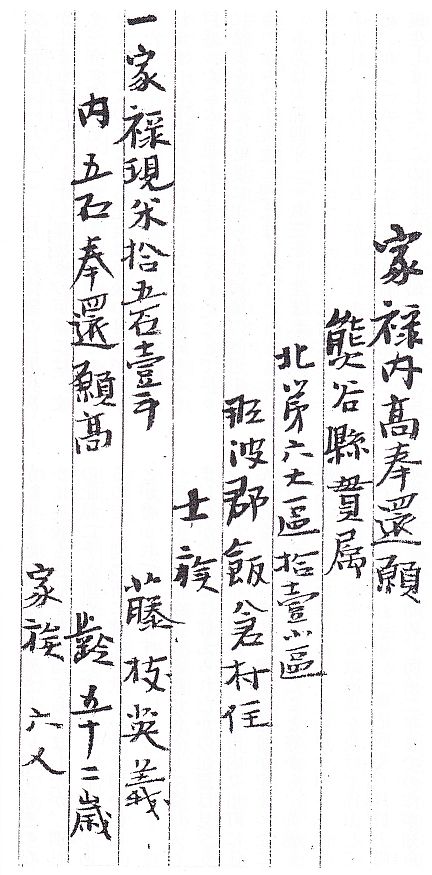 家禄内高奉還願
熊谷縣貫属
北第六大區拾壹小區
那波郡飯倉村住
士族
藤枝英義
齢五十二歳
家族六人
一家禄現米拾五石壹斗
内五石奉還願高